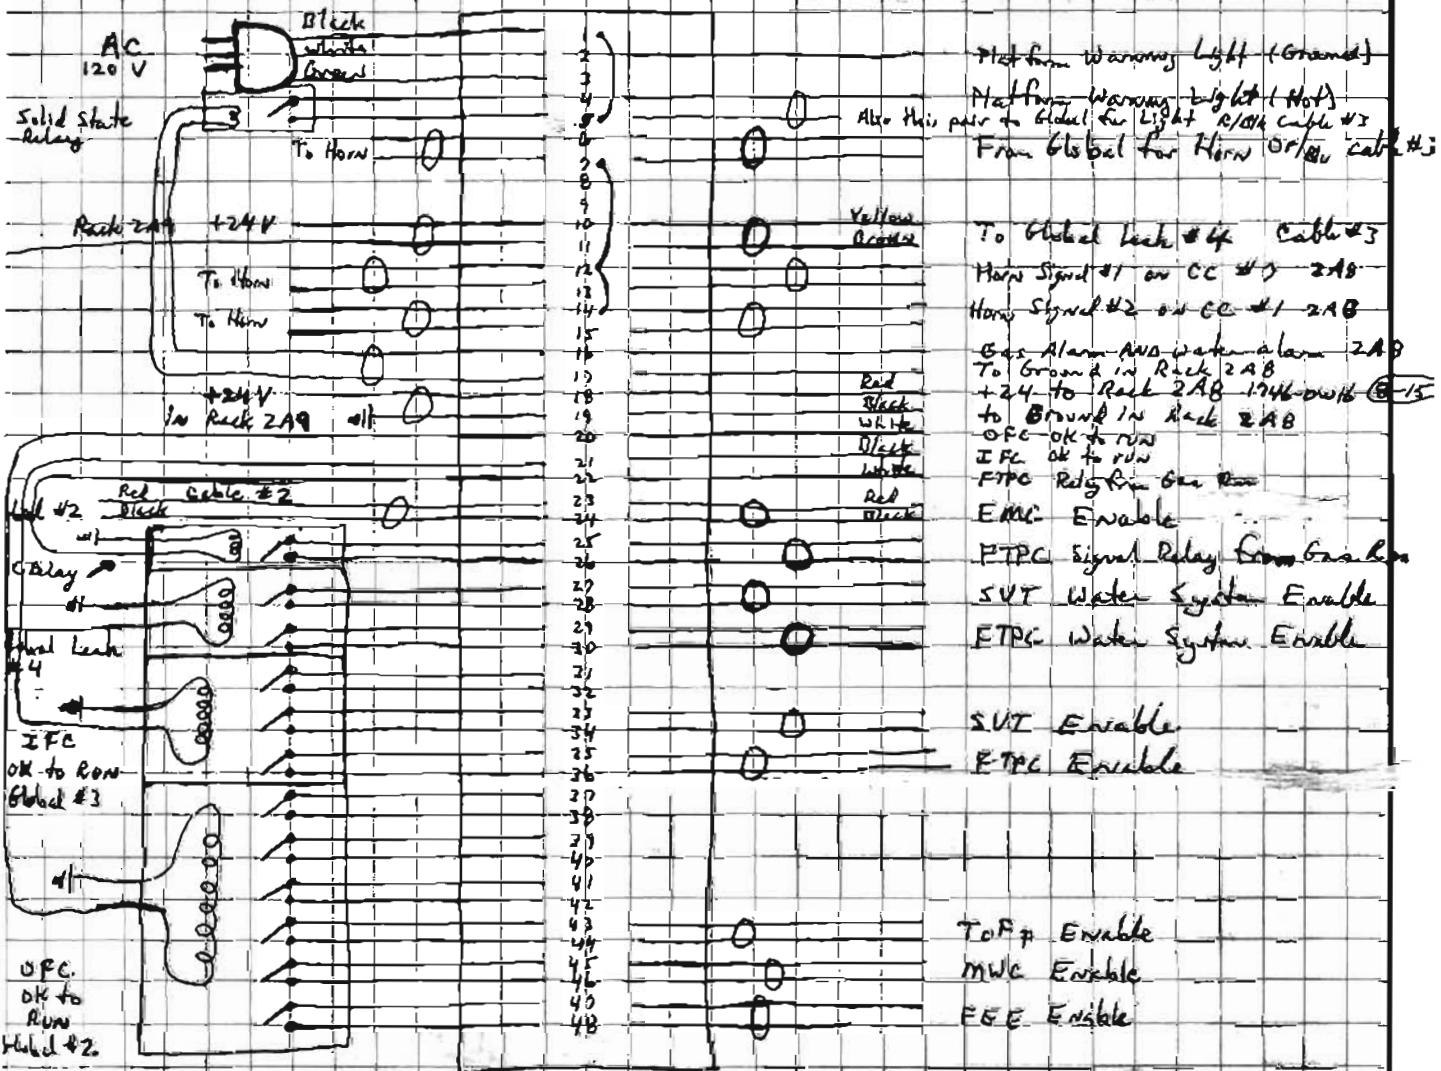 AC
120 V
Black
White
Green
Solid State
Relay
To Horn
Rack 2A9 +24V
To Horn
To Horn
+24V
in Rack 2A9
Red Cable #2
Black
#2
Relay
Leak
#4
IFC
OK to RUN
Global #3
OFC
OK to
RUN
Global #2
1
2
3
4
5
6
7
8
9
10
11
12
13
14
15
16
17
18
19
20
21
22
23
24
25
26
27
28
29
30
31
32
33
34
35
36
37
38
39
40
41
42
43
44
45
46
48
Yellow
Red
Black
White
Black
White
Red
Black
Platform Warning Light (Ground)
Platform Warning Light (Hot)
Also this pair to Global for Light R/Blk Cable #3
From Global for Horn Or/Blu cable #3
To Global Leak #4 Cable #3
Horn Signal #1 on CC 2AB
Horn Signal #2 on CC #1 2AB
Gas Alarm AND water alarm 2AB
To Ground in Rack 2AB
+24 to Rack 2AB 1746-OW16
to Ground in Rack 2AB
OFC OK to run
IFC OK to run
FTPC Relay from Gas
EMC Enable
FTPC Signal Relay from Gas
SVT Water System Enable
FTPC Water System Enable
SVT Enable
FTPC Enable
Enable
MWC Enable
EEE Enable